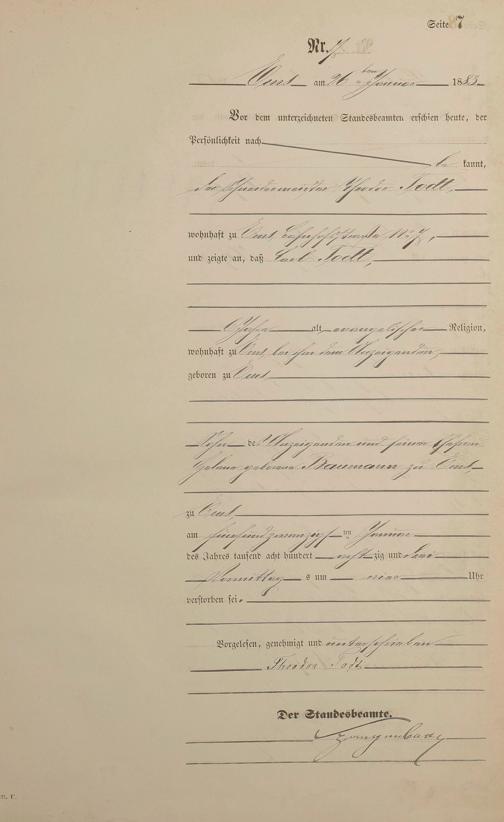 Seite 7
Nr. 7.
Ems am 26ten Januar 1883.
Vor dem unterzeichneten Standesbeamten erschien heute, der
Persönlichkeit nach
be kannt,
der Schneidermeister Theodor Todt,
wohnhaft zu Ems, No 7,
und zeigte an, daß Carl Todt,
alt, evangelischer Religion,
wohnhaft zu Ems, bei ihm dem Anzeigenden,
geboren zu Ems
Sohn des Anzeigenden und seiner Ehefrau
Helene geborene Baumann zu Ems,
zu Ems
am fünfundzwanzigsten Januar
des Jahres tausend acht hundert acht zig und drei
Vormittag s um Uhr
verstorben sei.
Vorgelesen, genehmigt und unterschrieben
Theodor Todt
Der Standesbeamte.